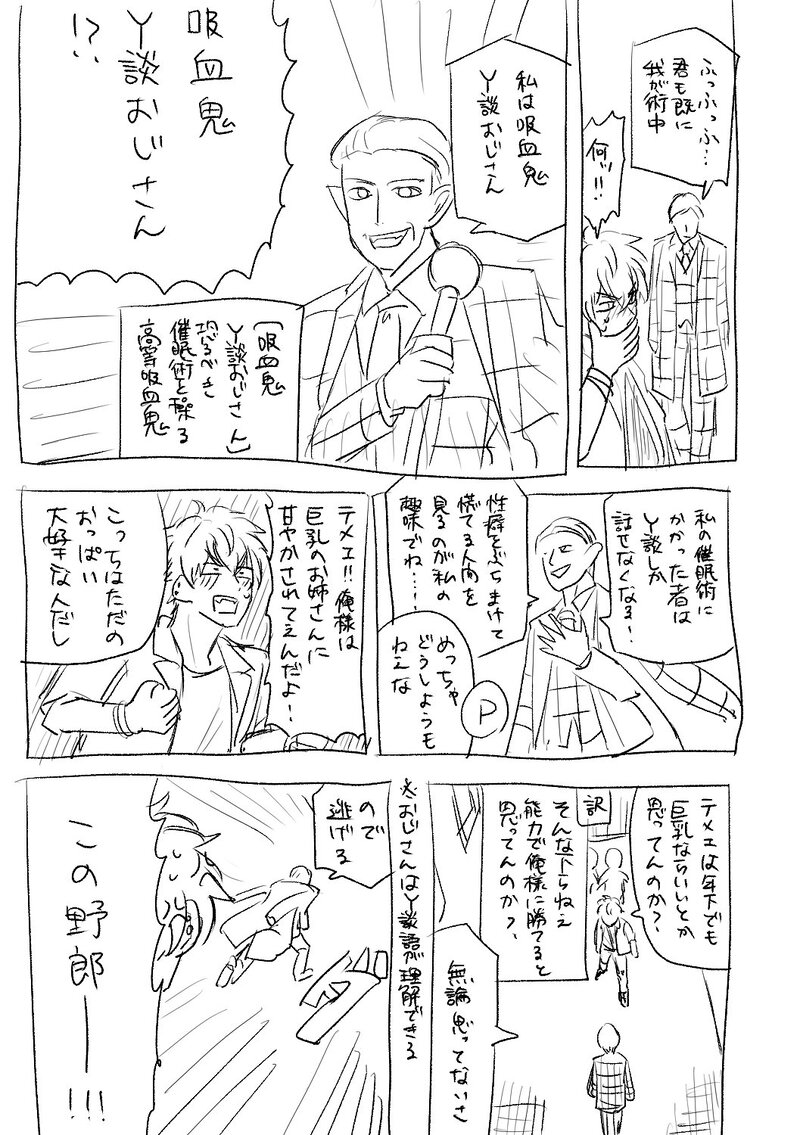 ふっふっふ…
君も既に
我が術中
何ッ!!
私は吸血鬼
Y談おじさん
吸血鬼
Y談おじさん
!?
「吸血鬼
Y談おじさん」
恐るべき
催眠術を操る
高等吸血鬼
私の催眠術に
かかった者は
Y談しか
話せなくなる!
性癖をぶちまけて
慌てる人間を
見るのが私の
趣味でね…
めっちゃ
どうしようも
ねえな
P
テメエ!!俺様は
巨乳のお姉さんに
甘やかされてえんだよ!
こっちはただの
おっぱい
大好きな人だし
テメエは年下でも
巨乳ならいいとか
思ってんのか?
訳
そんな下らねえ
能力で俺様に勝てると
思ってんのか?
無論思ってないさ
※おじさんはY談語が理解できる
ので
逃げる
この野郎ー!!!